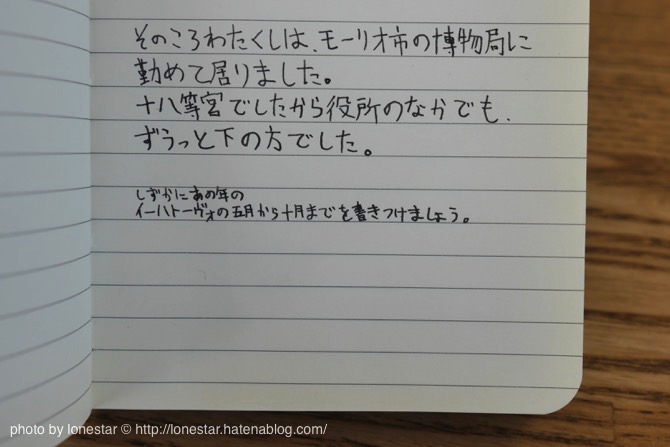 そのころわたくしは、モーリオ市の博物局に
勤めて居りました。
十八等官でしたから役所のなかでも、
ずうっと下の方でした。
しずかにあの年の
イーハトーヴォの五月から十月までを書きつけましょう。
photo by lonestar © http://lonestar.hatenablog.com/